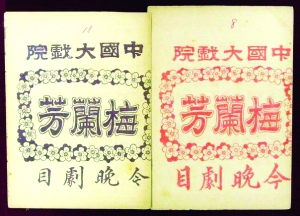 18
中國大戲院
梅蘭芳
今晚劇目
8
中國大戲院
梅蘭芳
今晚劇目